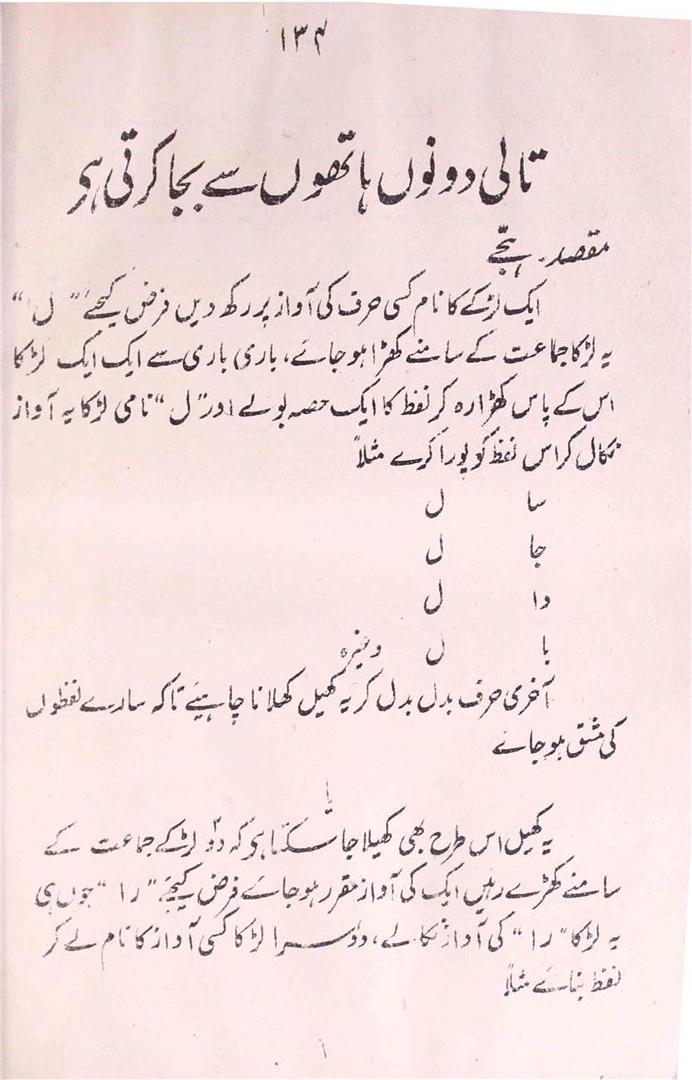 ۱۳۴
تالی دونوں ہاتھوں سے بجا کرتی ہی
مقصد۔ ہجّے
ایک لڑکے کا نام کسی حرف کی آواز پر رکھ دیں فرض کیجئے “ ل “
یہ لڑکا جماعت کے سامنے کھڑا ہو جائے، باری باری سے ایک ایک لڑکا
اس کے پاس کھڑا رہ کر لفظ کا ایک حصہ بولے اور “ل “ نامی لڑکا یہ آواز
نکال کر اس لفظ کو پورا کرے مثلاً
سا ل
جا ل
دا ل
با ل وغیرہ
آخری حرف بدل بدل کر یہ کھیل کھلانا چاہیئے تاکہ سارے لفظوں
کی مشق ہو جائے
یا
یہ کھیل اس طرح بھی کھیلا جا سکتا ہی کہ دو لڑکے جماعت کے
سامنے کھڑے رہیں ایک کی آواز مقرر ہو جائے فرض کیجئے “ را “ جوں ہی
یہ لڑکا “ را “ کی آواز نکالے، دوسرا لڑکا کسی آواز کا نام لے کر
لفظ بنائے مثلاً